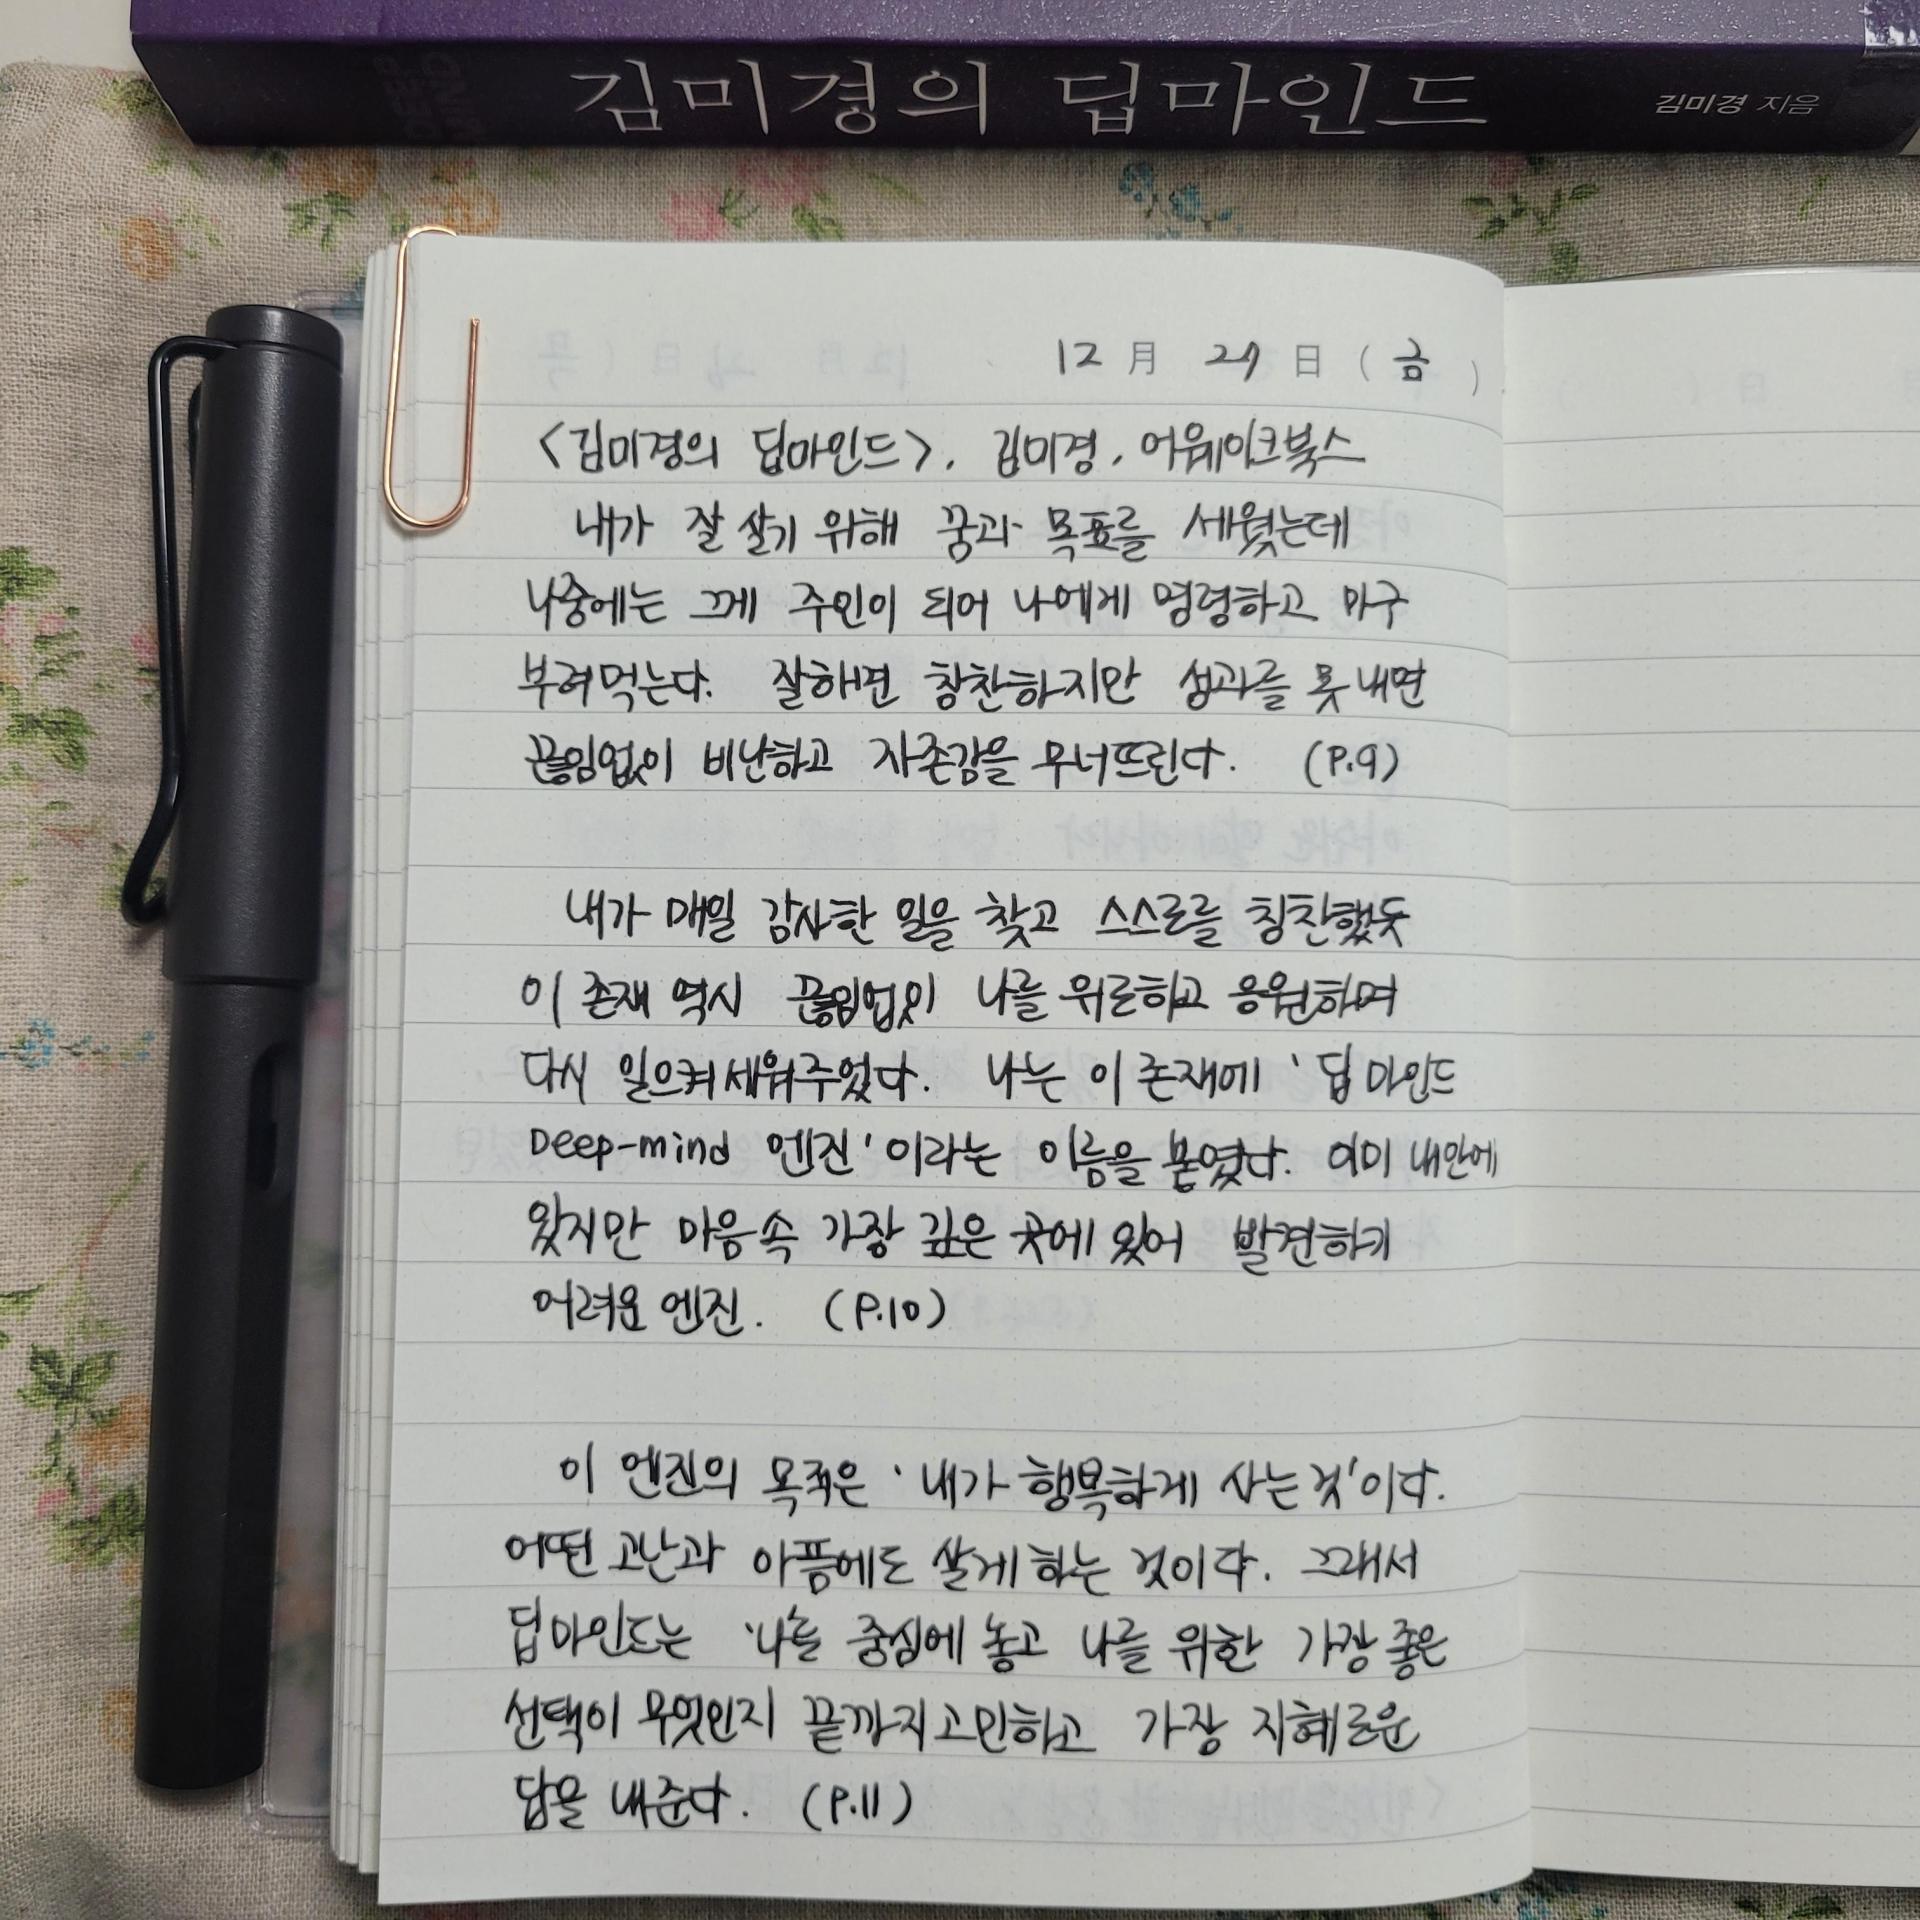 김미경의 딥마인드 김미경 지음
DEEP MIND
12 月 27 日 (금)
<김미경의 딥마인드>, 김미경, 어웨이크북스
내가 잘 살기 위해 꿈과 목표를 세웠는데
나중에는 그게 주인이 되어 나에게 명령하고 마구
부려먹는다. 잘하면 칭찬하지만 성과를 못 내면
끊임없이 비난하고 자존감을 무너뜨린다. (P.9)
내가 매일 감사한 일을 찾고 스스로를 칭찬했듯
이 존재 역시 끊임없이 나를 위로하고 응원하며
다시 일으켜세워주었다. 나는 이 존재에 '딥마인드
Deep-mind 엔진'이라는 이름을 붙였다. 이미 내안에
있지만 마음속 가장 깊은 곳에 있어 발견하기
어려운 엔진. (P.10)
이 엔진의 목적은 '내가 행복하게 사는 것'이다.
어떤 고난과 아픔에도 살게 하는 것이다. 그래서
딥마인드는 '나'를 중심에 놓고 나를 위한 가장 좋은
선택이 무엇인지 끝까지 고민하고 가장 지혜로운
답을 내준다. (P.11)